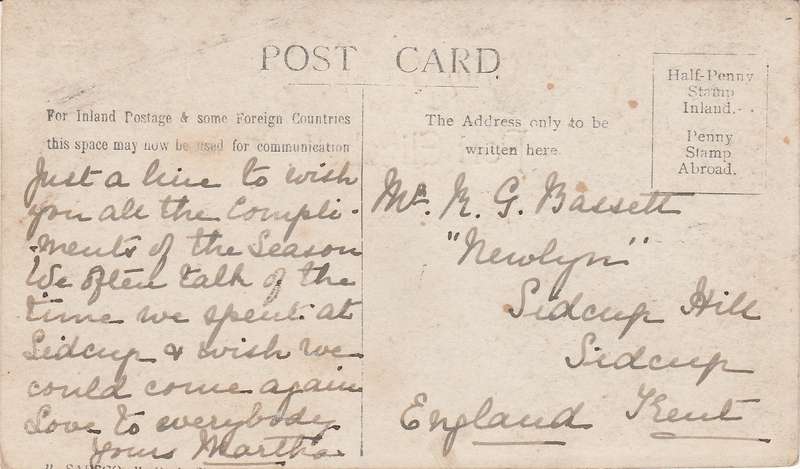 POST CARD
For Inland Postage & some Foreign Countries
this space may now be used for communication
The Address only to be
written here.
Half-Penny
Stamp
Inland.
Penny
Stamp
Abroad.
Just a line to wish
you all the Compli-
-ments of the Season
We often talk of the
time we spent at
Sidcup & wish we
could come again
Love to everybody
Yours Martha
Mr. R. G. Bassett
"Newlyn"
Sidcup Hill
Sidcup
England Kent